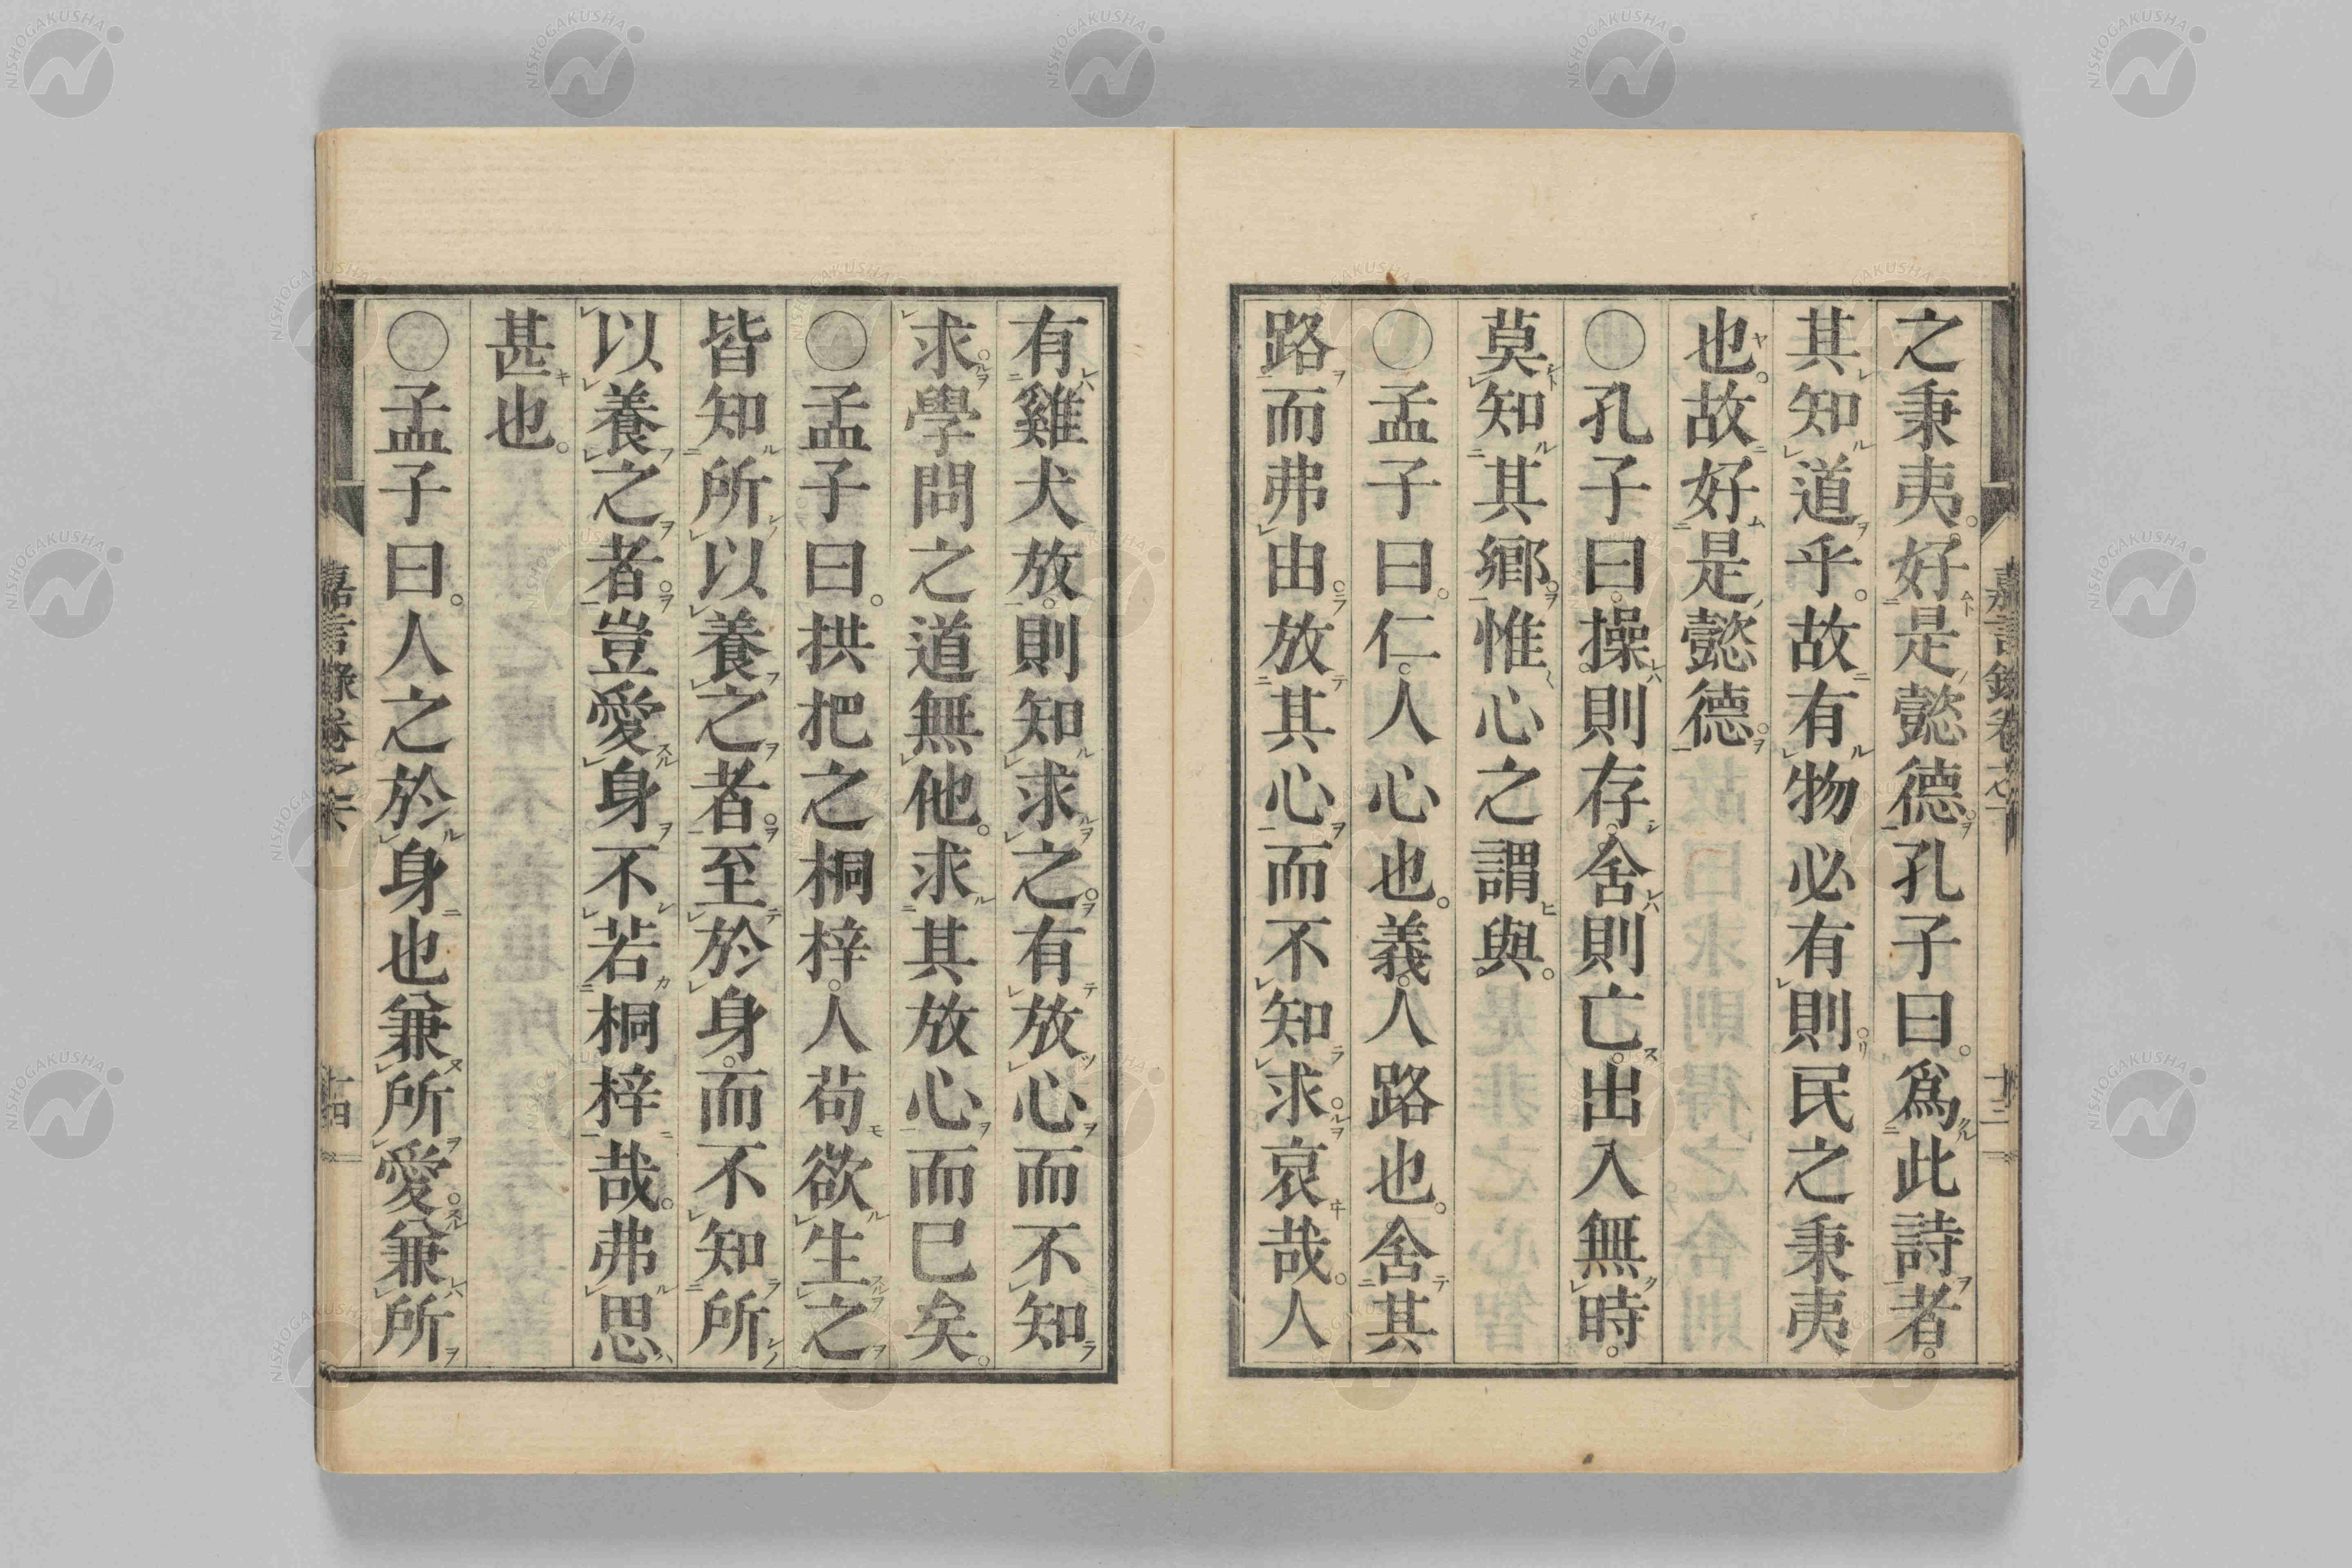 之秉夷。好是懿德。孔子曰。爲此詩者。
其知道乎。故有物必有則。民之秉夷
也。故好是懿德。
○孔子曰。操則存。舍則亡。出入無時。
莫知其鄕。惟心之謂與。
○孟子曰。仁。人心也。義。人路也。舍其
路而弗由。放其心而不知求。哀哉。人
有雞犬放。則知求之。有放心而不知
求。學問之道無他。求其放心而已矣。
○孟子曰。拱把之桐梓。人苟欲生之
皆知所以養之者。至於身。而不知所
以養之者。豈愛身不若桐梓哉。弗思
甚也。
○孟子曰。人之於身也兼所愛。兼所
嘉言錄卷之
十三
十四
NISHOGAKUSHA